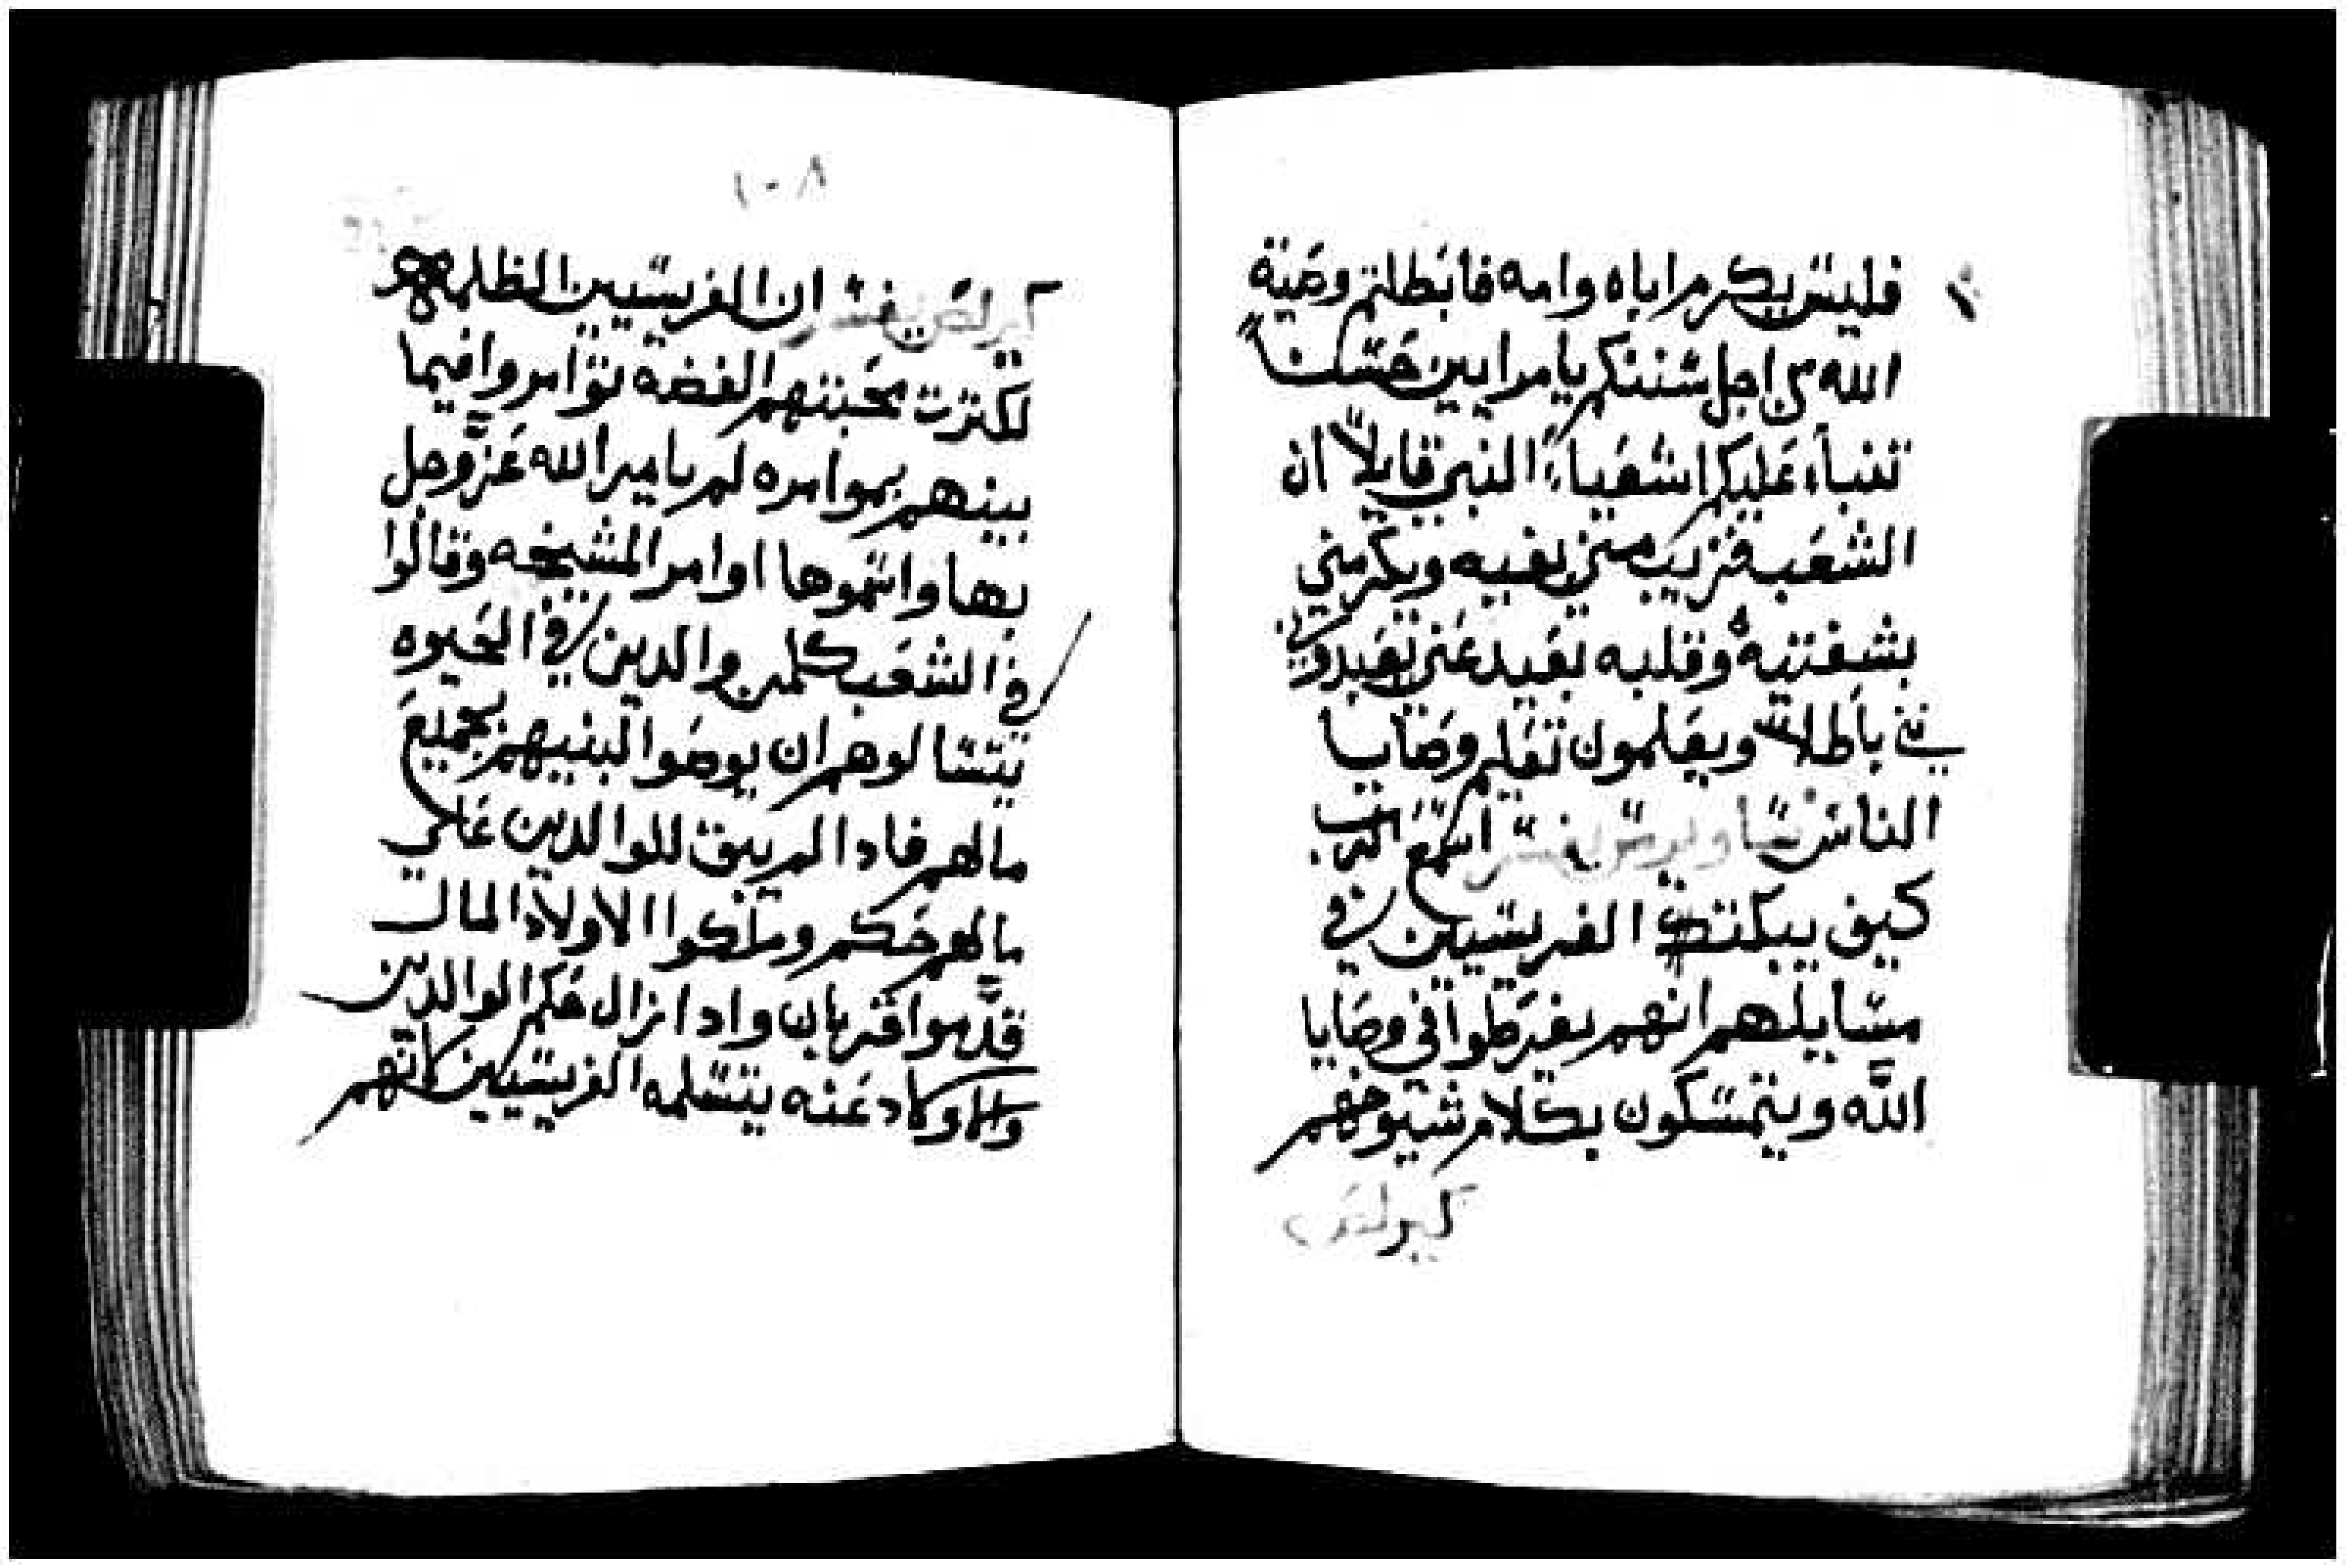 فليس يكرم اباه وامه فابطلتم وصية
الله من اجل سننكم يا مرايين حسناً
تنباء عليكم اشعياء النبي قايلاً ان
الشعب قريب مني بفيه ويكرمني
بشفتيه وقلبه بعيد عني يعبدو
ني باطلاً ويعلمون تعليم وصايا
الناس ساويرس يفسر اسمع الرب
كيف يبكت الفريسيين في
مسايلهم انهم يفرطوا في وصايا
الله ويتمسكون بكلام شيوخهم
كيرلص
١٠٨
كيرلص يفسر ان الفريسيين الظلمه
لكثرت محبتهم الفضه تؤامروا فيما
بينهم بموامره لم يامر الله عزَّ وجل
بها واسموها اوامر المشيخه وقالوا
في الشعب كلمن والدين في الحيوه
يتسالوهم ان يوصوا لبنيهم بجميع
مالهم فاذا لم يبق للوالدين علي
مالهم حكم وملكوا الاولاد المال
قدَّموا قربان واذا زال حكم الوالدين
عنه يتسلمه الفريسيين كانهم